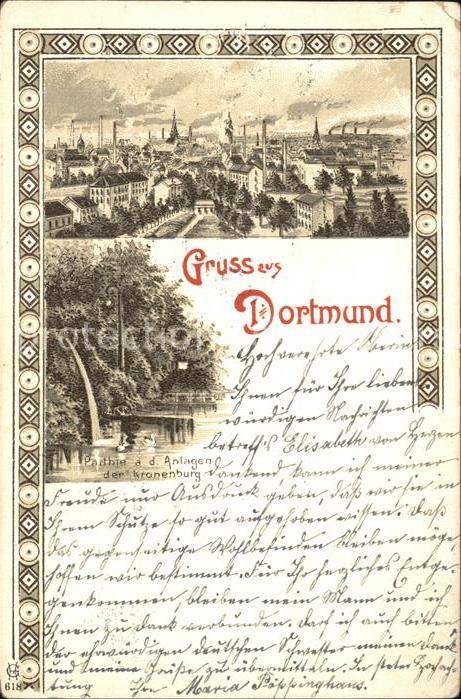 Gruss aus
Dortmund.
Hochverehrte Oberin
Ihnen für Ihre lieben
würdigen Nachrichten
betreffs Elisabeth von Hagen
Parthie a. d. Anlagen
der Kronenburg
dankend kann ich meiner
Freude nur Ausdruck geben, daß wir sie in
Ihrem Schutze so gut aufgehoben wissen. Daß
das gegenseitige Wohlbefinden bleiben möge,
hoffen wir bestimmt. Für Ihr herzliches Entge-
genkommen, bleiben mein Mann und ich
Ihnen zu Dank verbunden. Darf ich auch bitten
der ehrwürdigen deutschen Schwester meinen Dank
und meine Grüße zu übermitteln. In steter Hochach-
tung Ihre Maria Pöppinghaus.
618